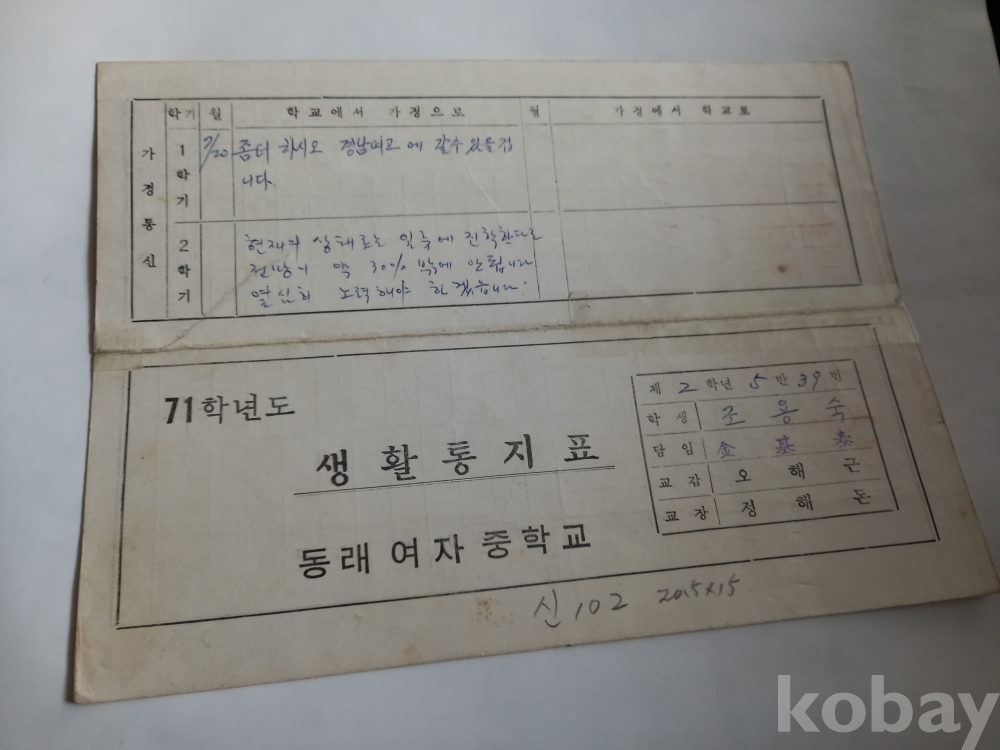 학기 월 학교에서 가정으로 월 가정에서 학교로
가정통신
1학기 7/20 좀더 하시오 경남여고에 갈수 있을겁
니다.
2학기 현재의 상태로는 일후에 진학한다로
전망이 약 30% 밖에 안됩니다
열심히 노력해야 하겠습니다.
71학년도
생활통지표
동래여자중학교
제 2 학년 5 반 39 번
학생 조용숙
담임 金基泰
교감 오해근
교장 정해돈
신102 20.5x15
kobay